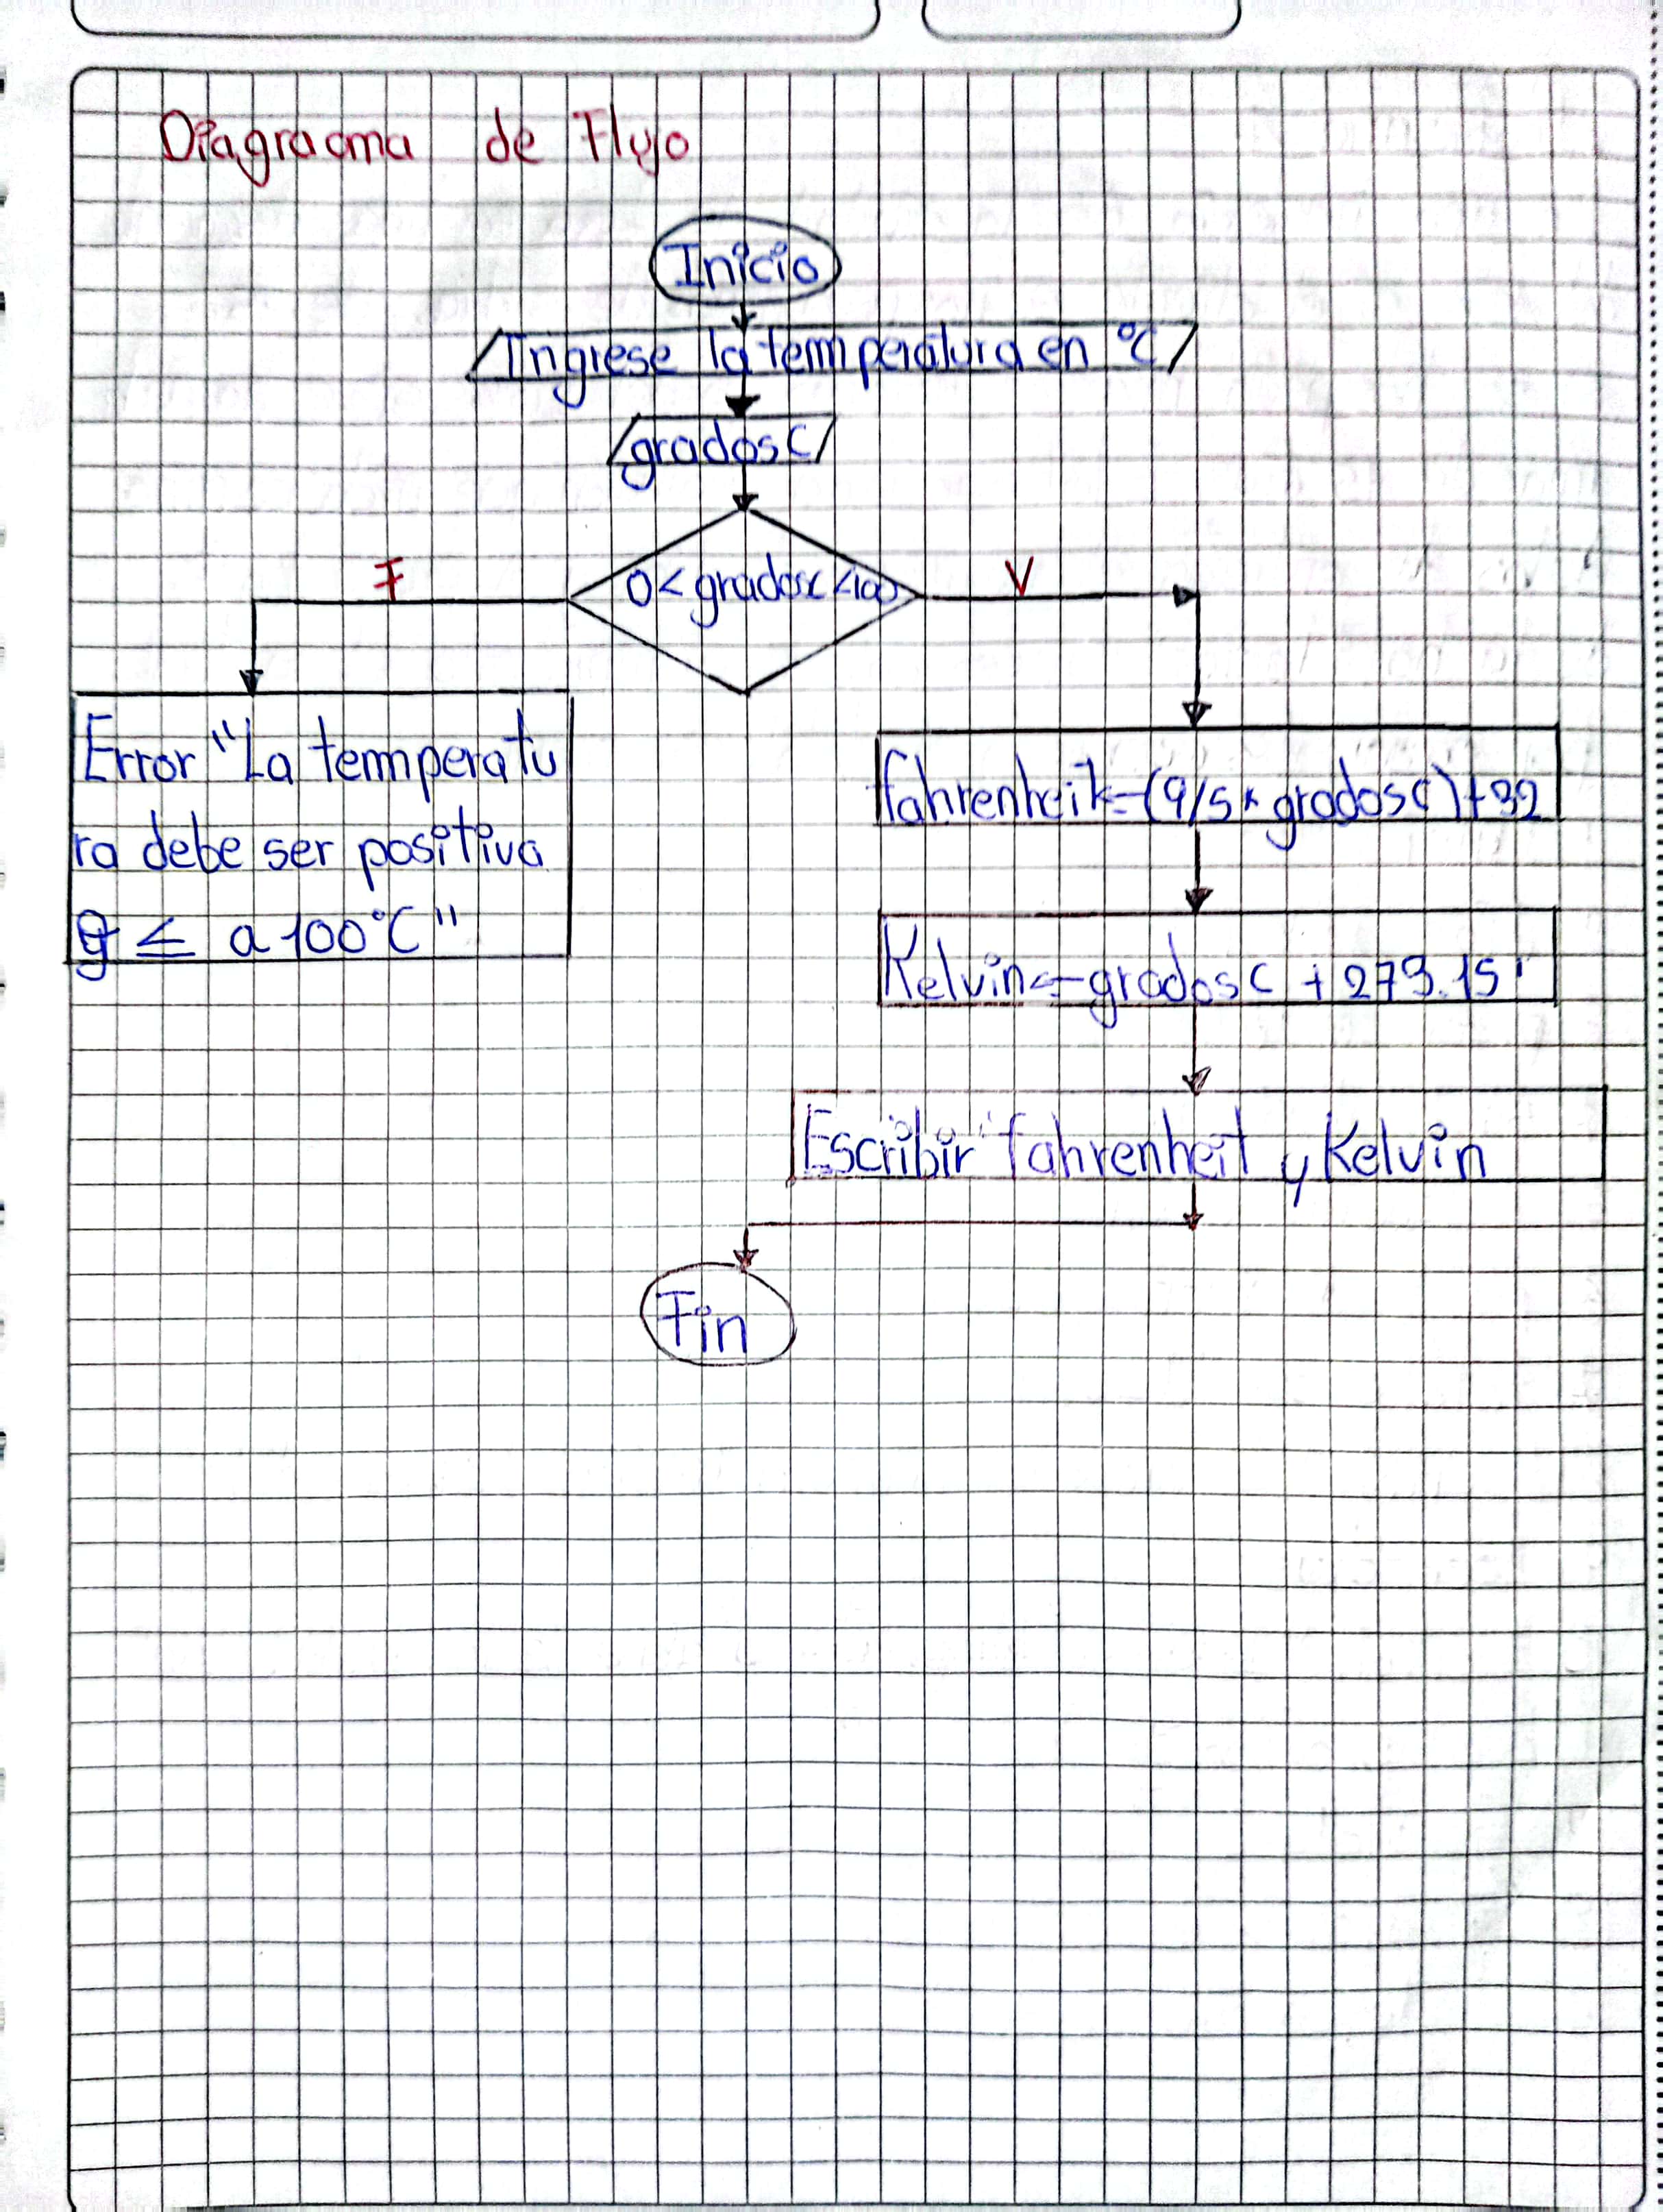 Diagrama de Flujo
Inicio
Ingrese la temperatura en °C
gradosC
F
0 < gradosc <100
V
Error "La temperatu
ra debe ser positiva
≤ a 100°C"
fahrenheit=(9/5 * gradosC)+32
Kelvin<=gradosC + 273.15
Escribir fahrenheit y Kelvin
Fin